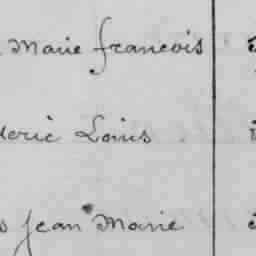 Marie francois
deric Louis
s jean Marie